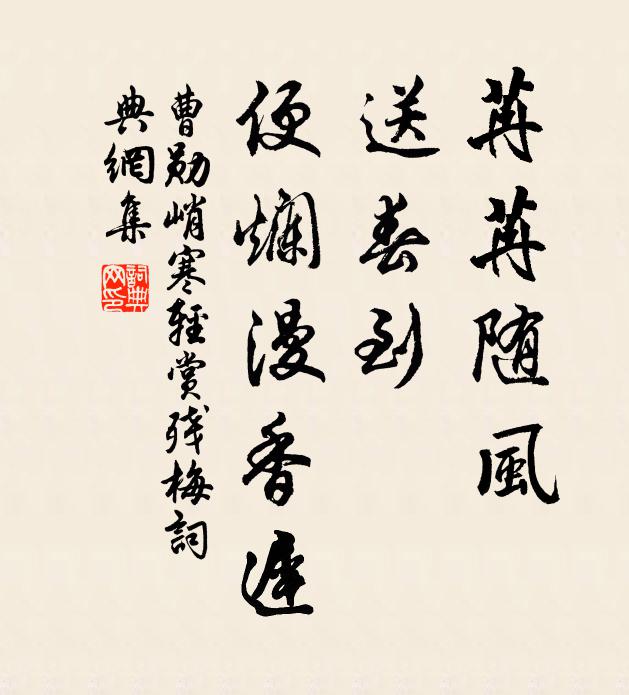 苒苒随風
送春到
便爛漫香遲
曹勛峭寒輕賞残梅詞
典網集
詞典網印